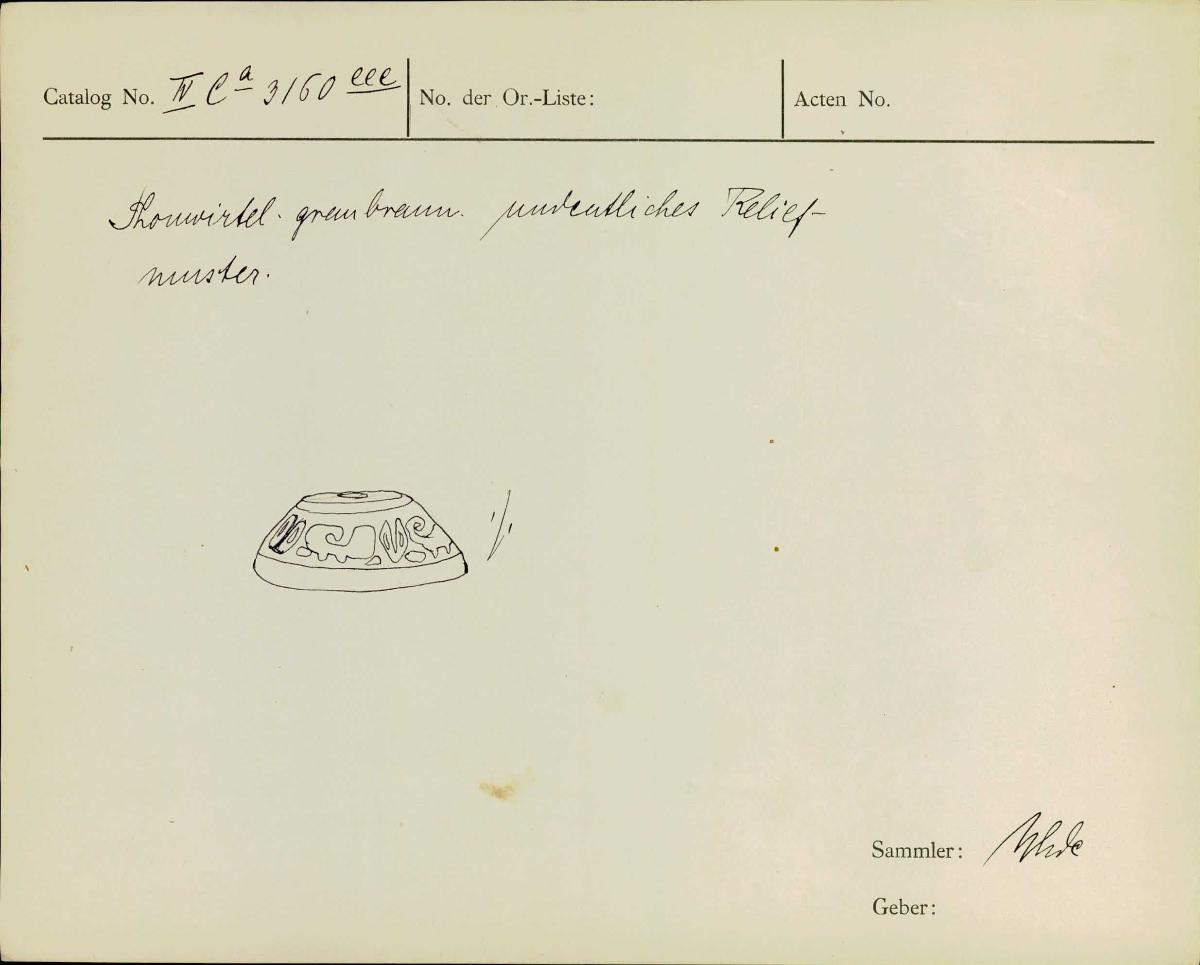 Catalog No. IV Cª 3160 eee
No. der Or.-Liste:
Acten No.
Thonwirtel. graubraun. undeutliches Relief-
muster.
1/1
Sammler: Uhde
Geber: